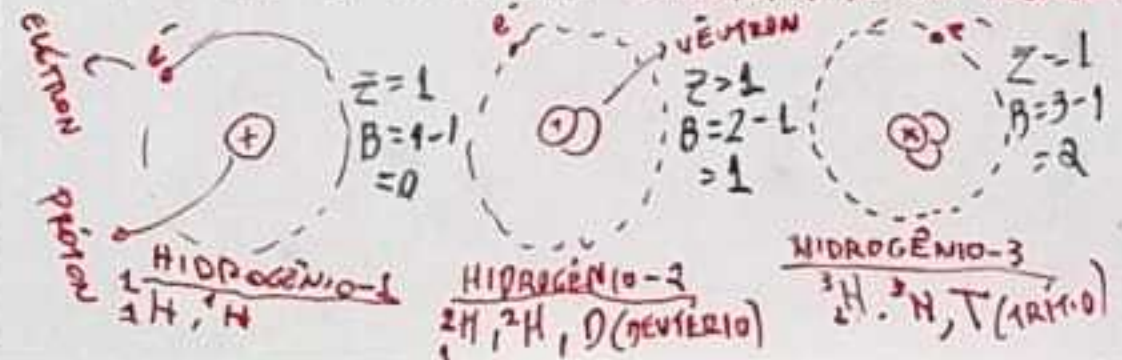 ELÉTRON
PRÓTON
e
Z=1
B=1-1
=0
HIDROGÊNIO-1
1
1H, ¹H
e⁻
NÊUTRON
Z=1
B=2-1
=1
HIDROGÊNIO-2
²₁H, ²H, D(DEUTÉRIO)
Z=1
B=3-1
=2
HIDROGÊNIO-3
³₁H, ³H, T(TRÍTIO)